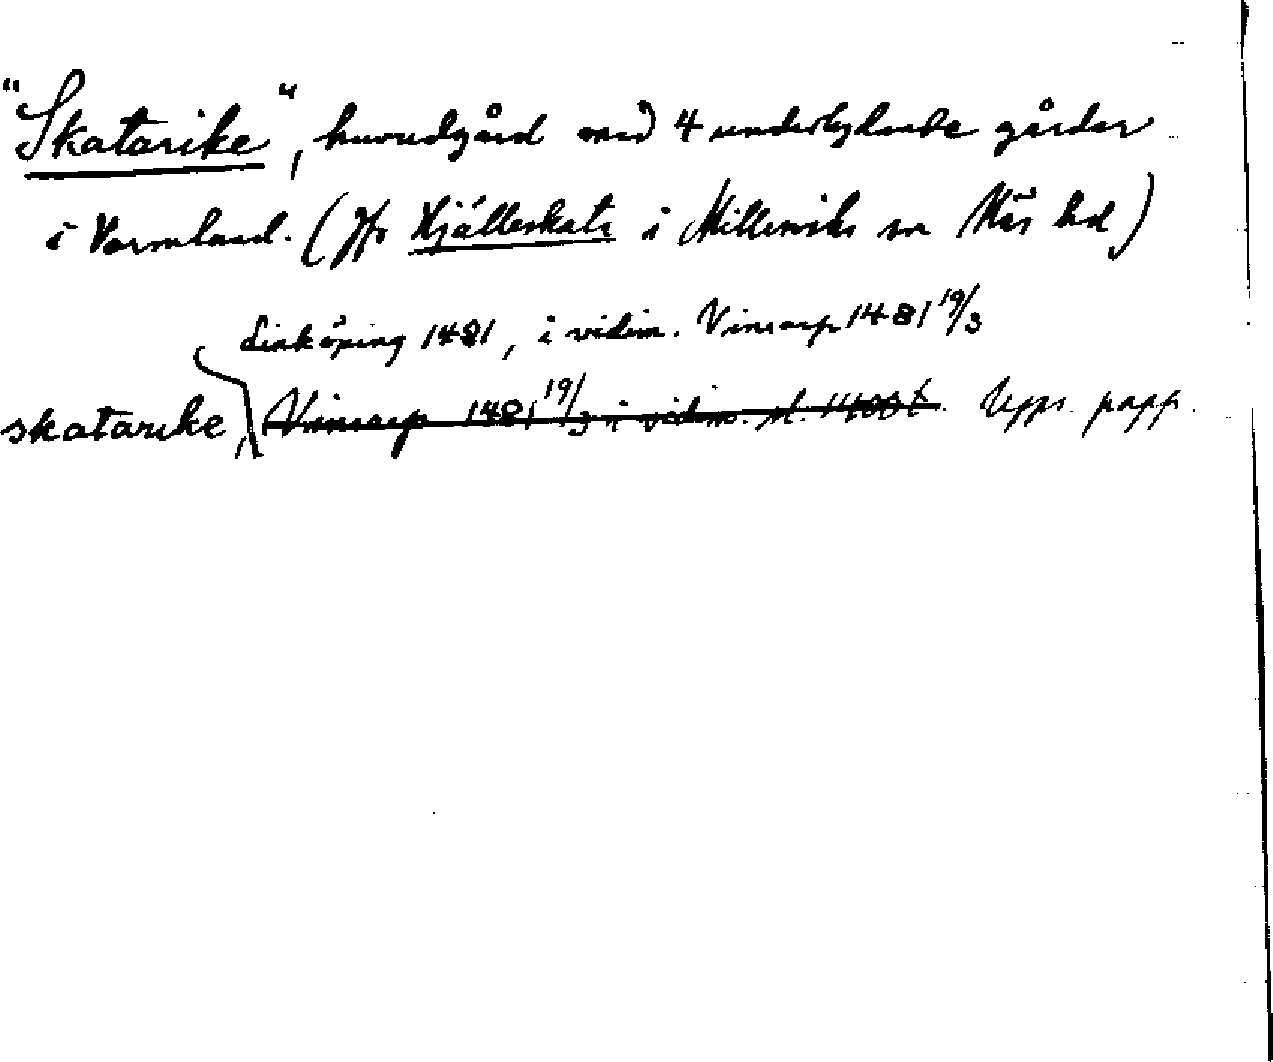 "Skatarike", huvudgård med 4 underlydande gårdar
i Värmland. (Jfr Kjälleskata i Millesviks sn Näs hd)
Linköping 1481, i vidim. Vinsarp 1481 19/3
skatarike, Vinsarp 1481 19/3 i vidim. sl. 1400 t. Upps. papp.